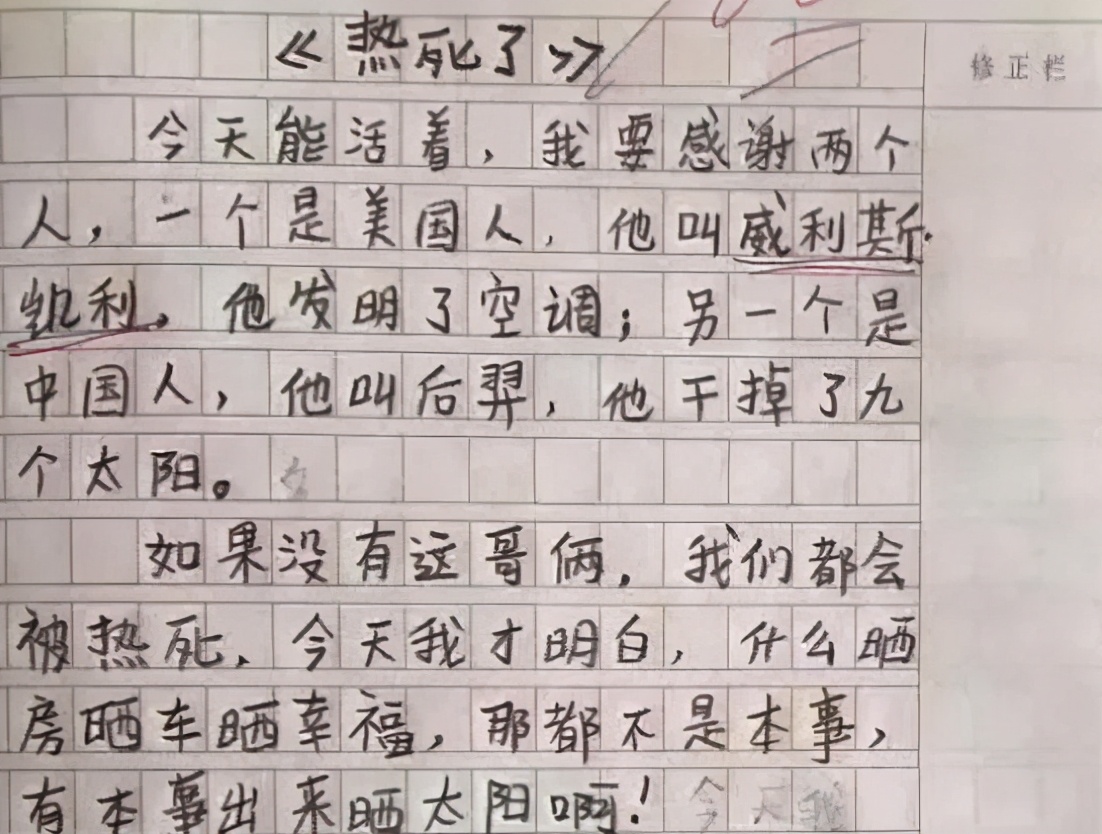 《热死了》
修正栏
今天能活着，我要感谢两个
人，一个是美国人，他叫威利斯·
凯利，他发明了空调；另一个是
中国人，他叫后羿，他干掉了九
个太阳。
如果没有这哥俩，我们都会
被热死，今天我才明白，什么晒
房晒车晒幸福，那都不是本事，
有本事出来晒太阳啊！